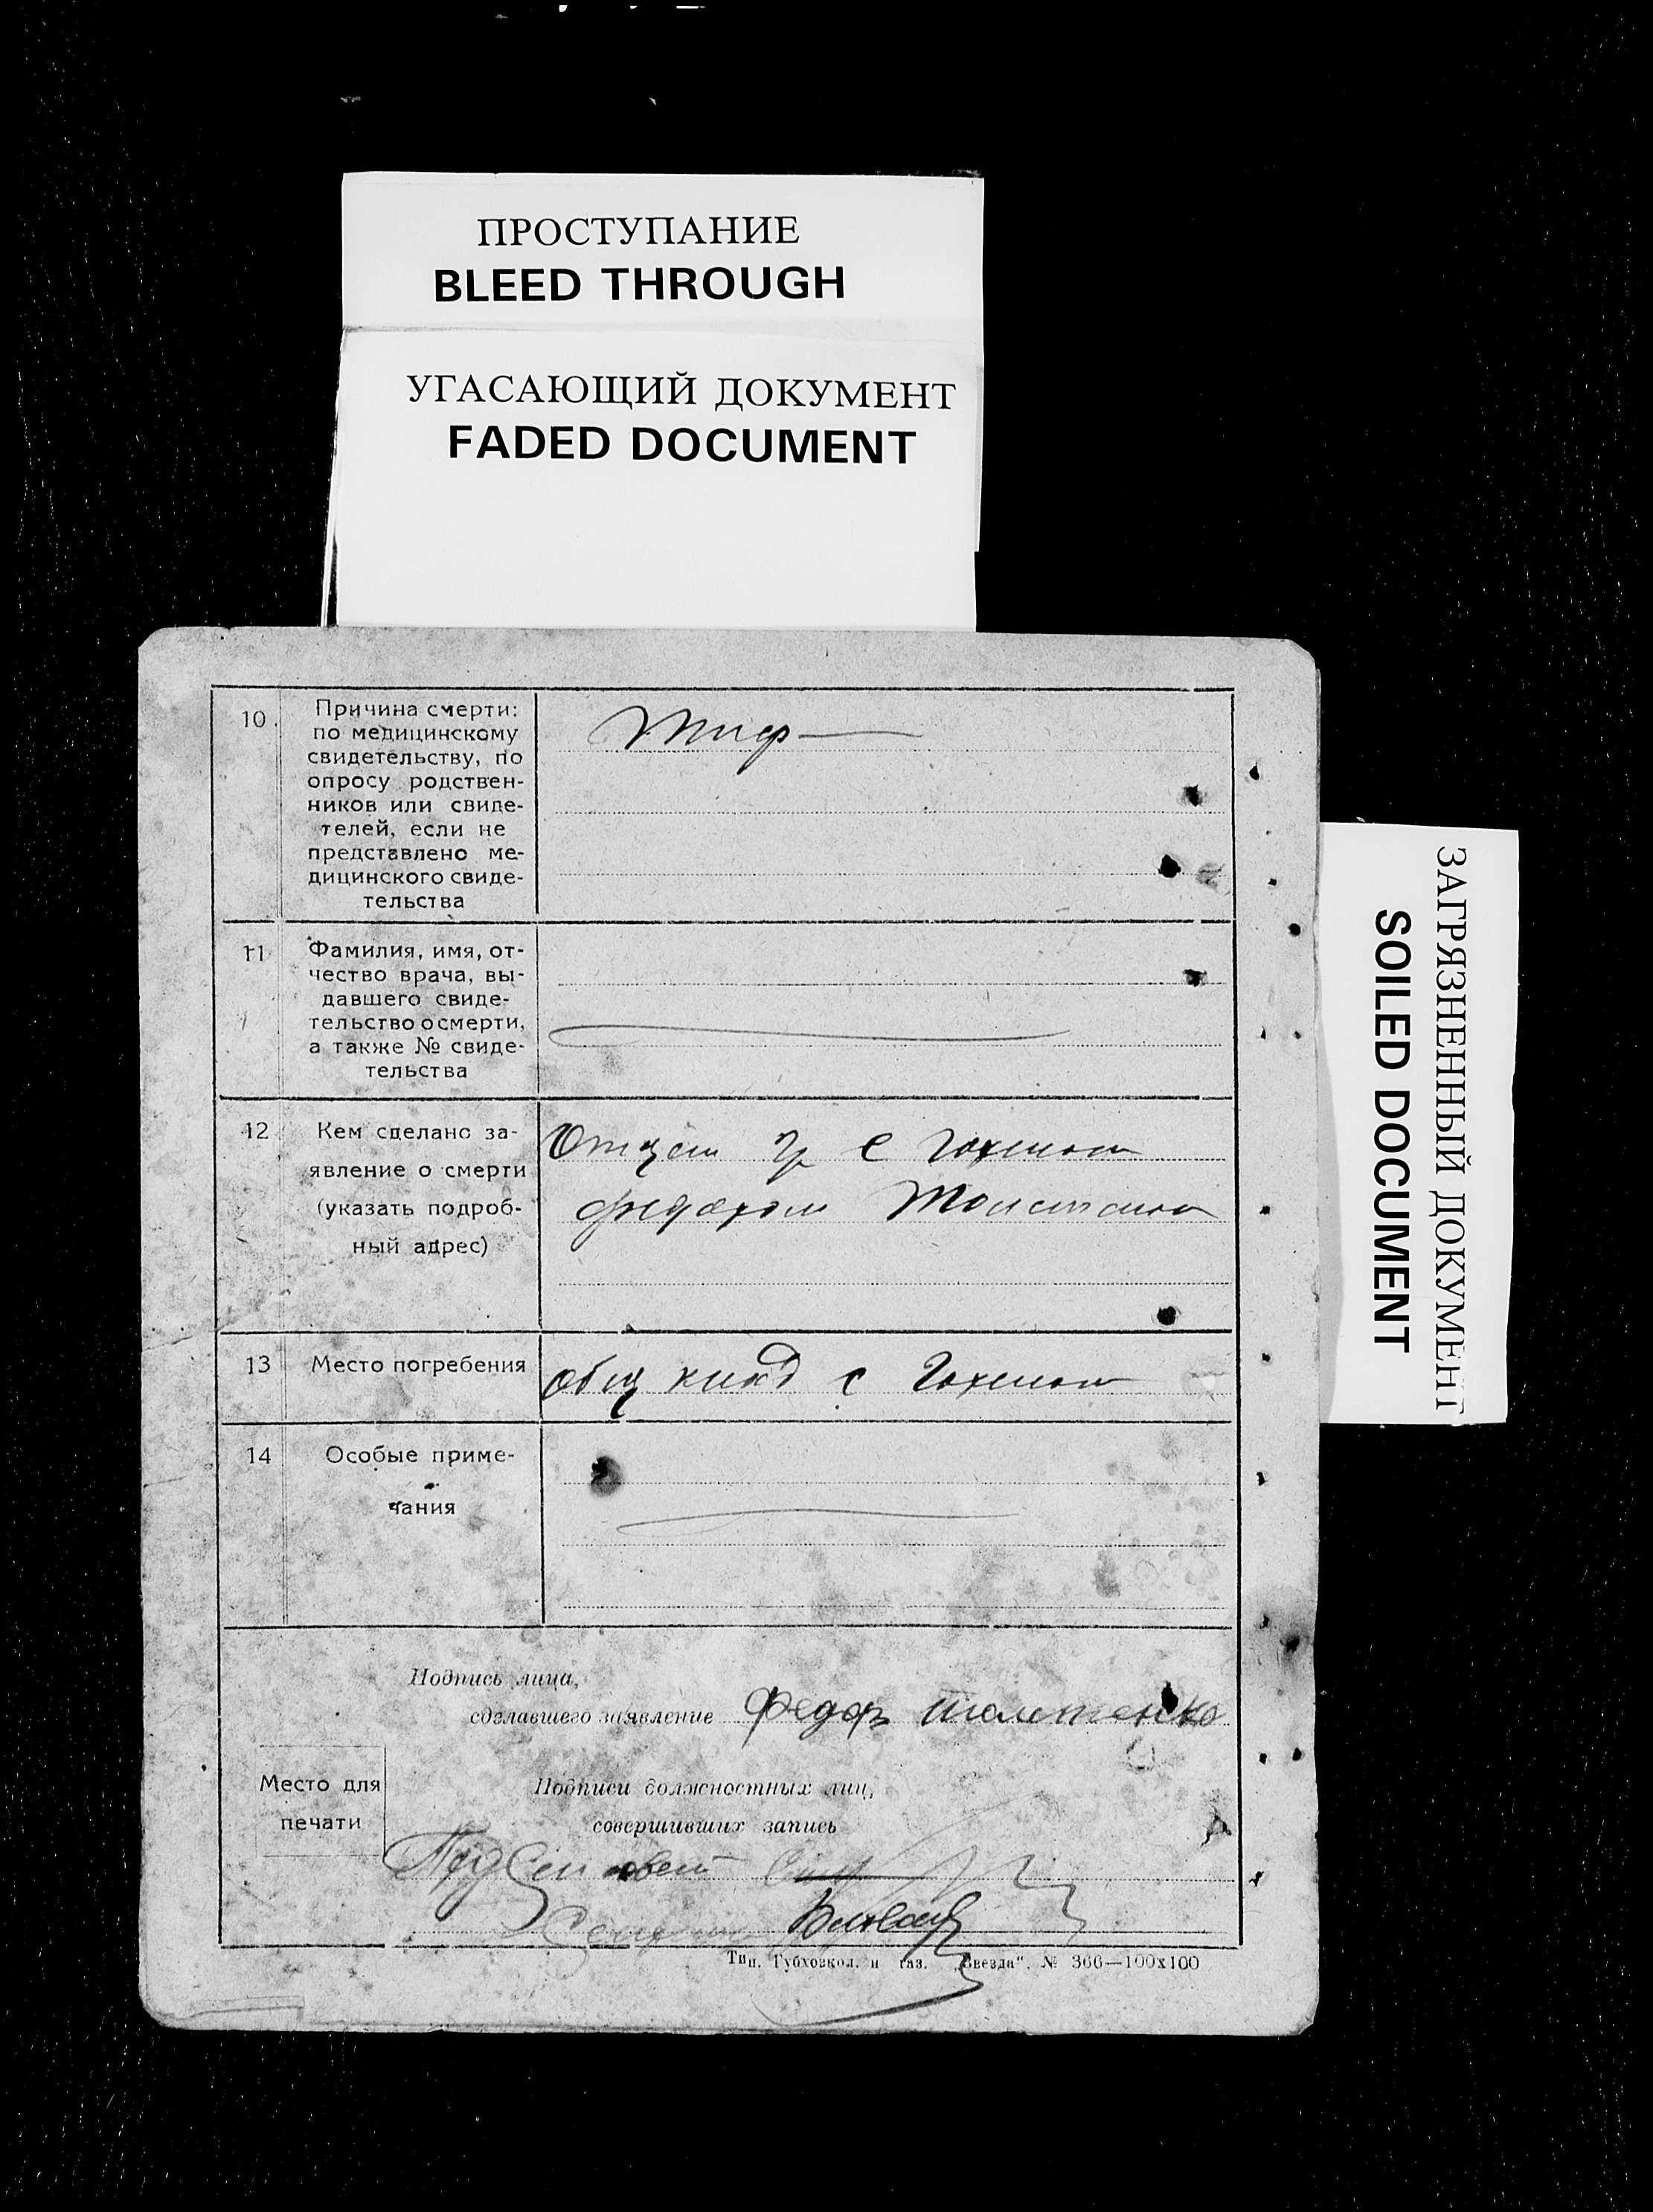 ПРОСТУПАНИЕ
BLEED THROUGH
УГАСАЮЩИЙ ДОКУМЕНТ
FADED DOCUMENT
ЗАГРЯЗНЕННЫЙ ДОКУМЕНТ
SOILED DOCUMENT
10.
Причина смерти:
по медицинскому
свидетельству, по
опросу родствен-
ников или свиде-
телей, если не
представлено ме-
дицинского свиде-
тельства
Тиф
11
Фамилия, имя, от-
чество врача, вы-
давшего свиде-
тельство о смерти,
а также № свиде-
тельства
12
Кем сделано за-
явление о смерти
(указать подроб-
ный адрес)
Отцем гр с
13
Место погребения
общ кладб с
14
Особые приме-
чания
Подпись лица,
сделавшего заявление Федор
Место для
печати
Подписи должностных лиц,
совершивших запись
Пред Сельсовета
Тип. Губхозкол. и газ. „Звезда“. № 366—100х100